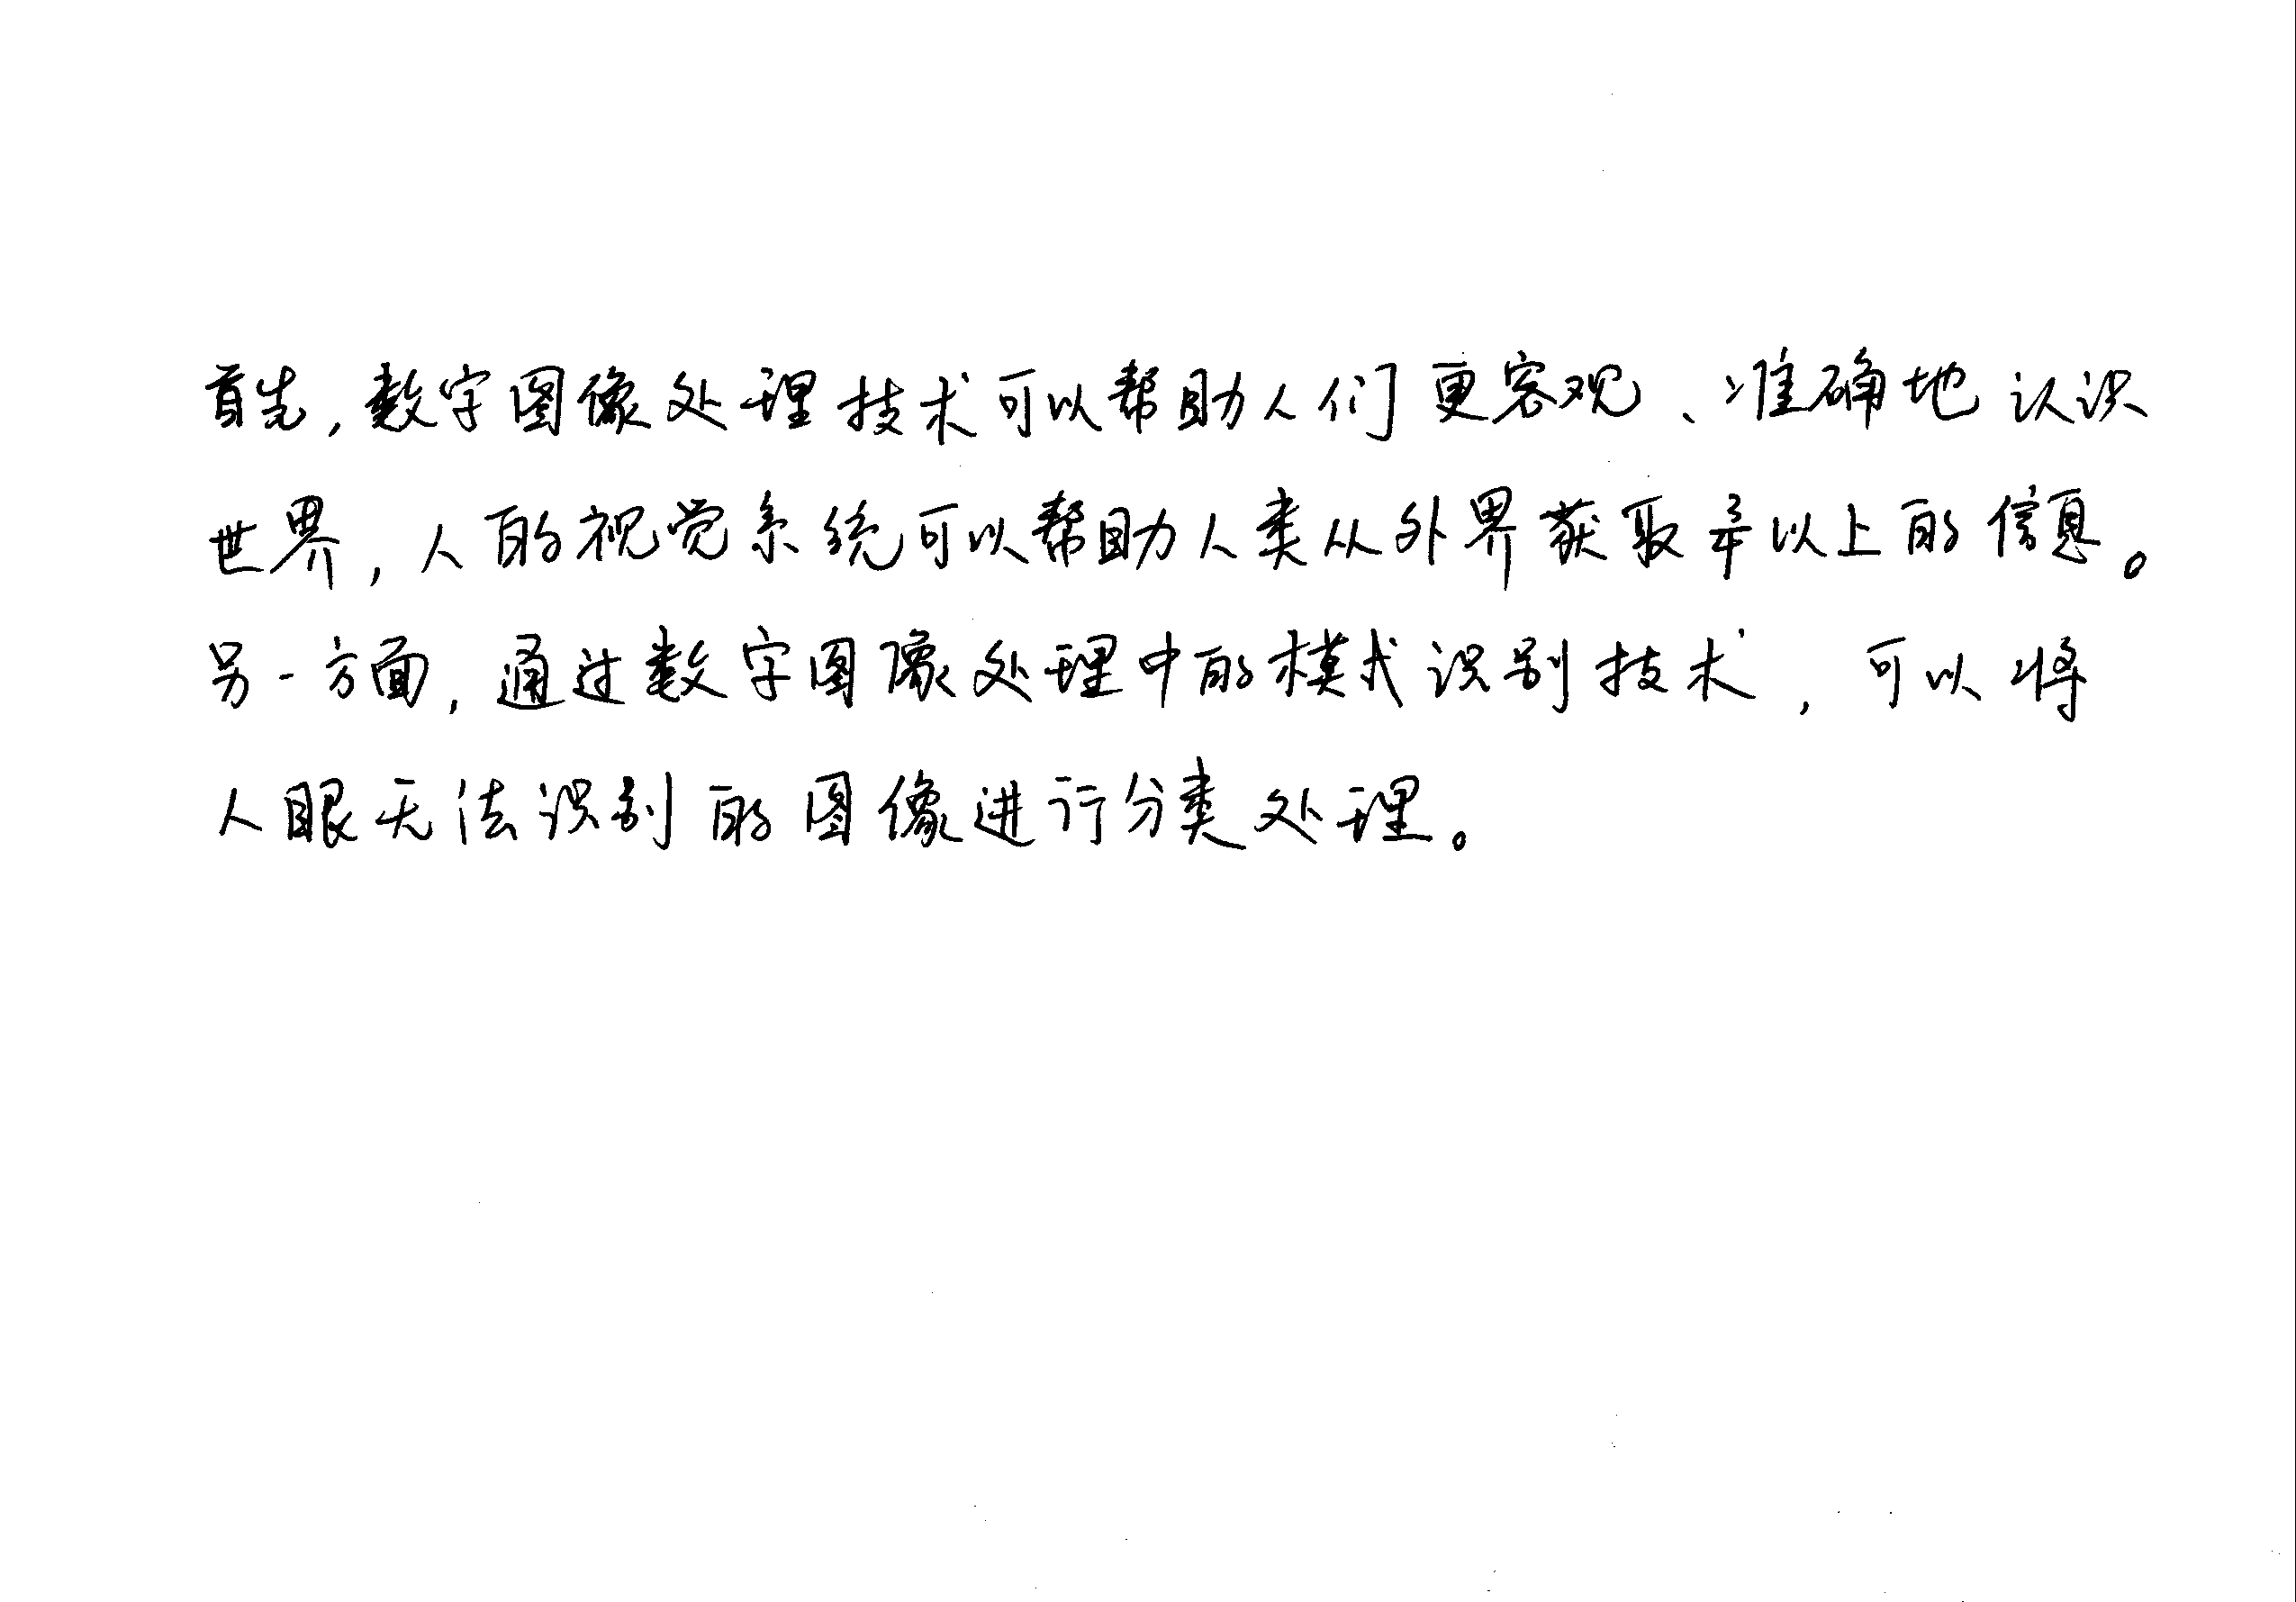 首先，数字图像处理技术可以帮助人们更客观、准确地认识
世界，人的视觉系统可以帮助人类从外界获取3/4以上的信息。
另一方面，通过数字图像处理中的模式识别技术，可以将
人眼无法识别的图像进行分类处理。